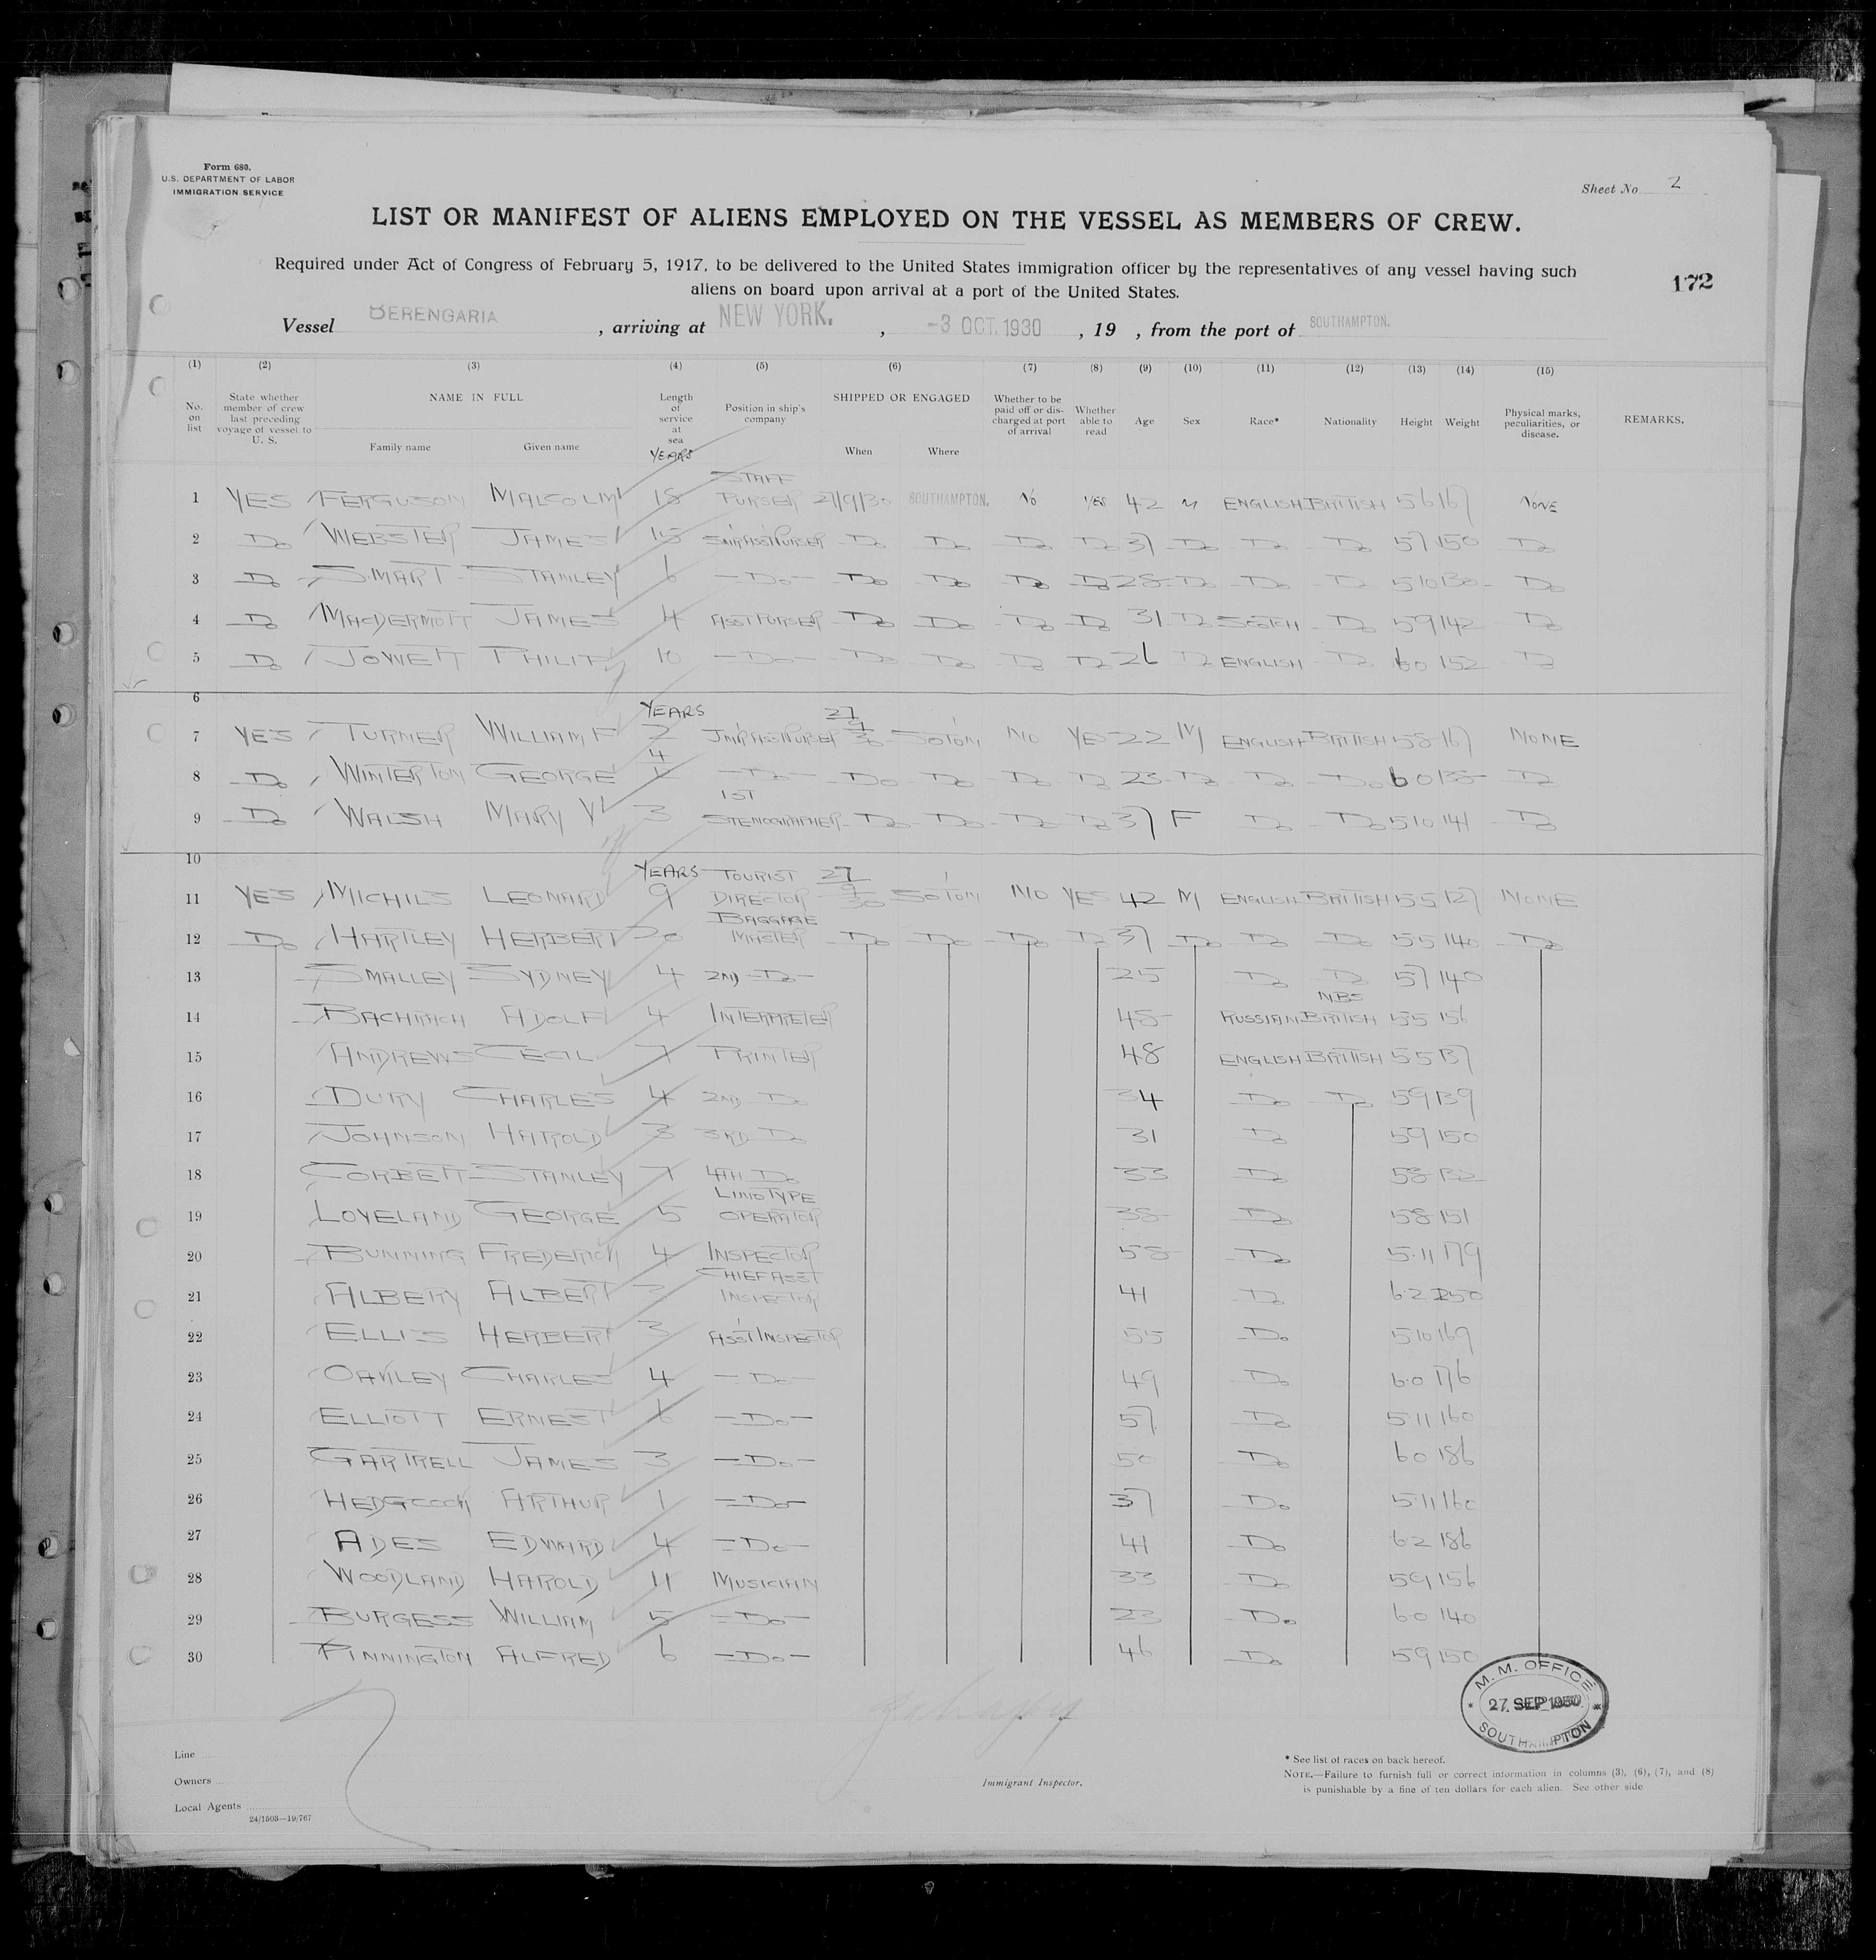 Form 680.
U.S. DEPARTMENT OF LABOR
IMMIGRATION SERVICE
Sheet No 2
LIST OR MANIFEST OF ALIENS EMPLOYED ON THE VESSEL AS MEMBERS OF CREW.
Required under Act of Congress of February 5, 1917, to be delivered to the United States immigration officer by the representatives of any vessel having such
aliens on board upon arrival at a port of the United States.
172
Vessel BERENGARIA, arriving at NEW YORK., -3 OCT. 1930, 19 , from the port of SOUTHAMPTON.
(1) (2) (3) (4) (5) (6) (7) (8) (9) (10) (11) (12) (13) (14) (15)
No. on list State whether member of crew last preceding voyage of vessel to U. S. NAME IN FULL Family name Given name Length of service at sea Position in ship's company SHIPPED OR ENGAGED When Where Whether to be paid off or discharged at port of arrival Whether able to read Age Sex Race* Nationality Height Weight Physical marks, peculiarities, or disease. REMARKS.
YEARS
1 YES FERGUSON MALCOLM 18 STAFF PURSER 27/9/30 SOUTHAMPTON. NO YES 42 M ENGLISH BRITISH 56 167 NONE
2 Do WEBSTER JAMES 15 SNR ASST PURSER Do Do Do Do 37 Do Do Do 57 150 Do
3 Do SMART STANLEY 6 -Do- Do Do Do Do 28 Do Do Do 510 130 Do
4 Do MACDERMOTT JAMES 4 ASST PURSER Do Do Do Do 31 Do SCOTCH Do 59 142 Do
5 Do JOWETT PHILIP 10 -Do- Do Do Do Do 26 Do ENGLISH Do 60 152 Do
6
YEARS
7 YES TURNER WILLIAM F 2 JNR ASST PURSER 27/9/30 SOTON NO YES 22 M ENGLISH BRITISH 58 167 NONE
8 Do WINTERTON GEORGE 4 -Do- Do Do Do Do 23 Do Do Do 60 135 Do
9 Do WALSH MARY V 3 1ST STENOGRAPHER Do Do Do Do 37 F Do Do 510 141 Do
10
YEARS
11 YES MICHILS LEONARD 9 TOURIST DIRECTOR 27/9/30 SOTON NO YES 42 M ENGLISH BRITISH 55 127 NONE
12 Do HARTLEY HERBERT 20 BAGGAGE MASTER Do Do Do Do 37 Do Do Do 55 140 Do
13 SMALLEY SYDNEY 4 2ND -Do- 25 Do Do 57 140
14 BACHRACH ADOLF 4 INTERPRETER 48 RUSSIAN NBS BRITISH 55 156
15 ANDREWS CECIL 7 PRINTER 48 ENGLISH BRITISH 55 137
16 DURY CHARLES 4 2ND Do 34 Do Do 59 139
17 JOHNSON HAROLD 3 3RD Do 31 Do 59 150
18 CORBETT STANLEY 7 4TH Do 33 Do 58 132
19 LOVELAND GEORGE 5 LINOTYPE OPERATOR 38 Do 58 151
20 BUNNING FREDERICK 4 INSPECTOR 58 Do 5.11 179
21 ALBERY ALBERT CHIEF ASST INSPECTOR 41 Do 6.2 250
22 ELLIS HERBERT 3 ASST INSPECTOR 55 Do 510 169
23 OAKLEY CHARLES 4 -Do- 49 Do 6.0 176
24 ELLIOTT ERNEST 6 -Do- 57 Do 5 11 160
25 GARTRELL JAMES 3 -Do- 50 Do 60 186
26 HEDGCOCK ARTHUR 1 -Do- 37 Do 5.11 160
27 ADES EDWARD 4 -Do- 41 Do 6.2 186
28 WOODLAND HAROLD 11 MUSICIAN 33 Do 59 156
29 BURGESS WILLIAM 5 -Do- 23 Do 6.0 140
30 PINNINGTON ALFRED 6 -Do- 46 Do 59 150
M. M. OFFICE
27 SEP 1930
SOUTHAMPTON
Line
Owners
Local Agents
24/1508—19/767
Immigrant Inspector.
* See list of races on back hereof.
NOTE.—Failure to furnish full or correct information in columns (3), (6), (7), and (8)
is punishable by a fine of ten dollars for each alien. See other side